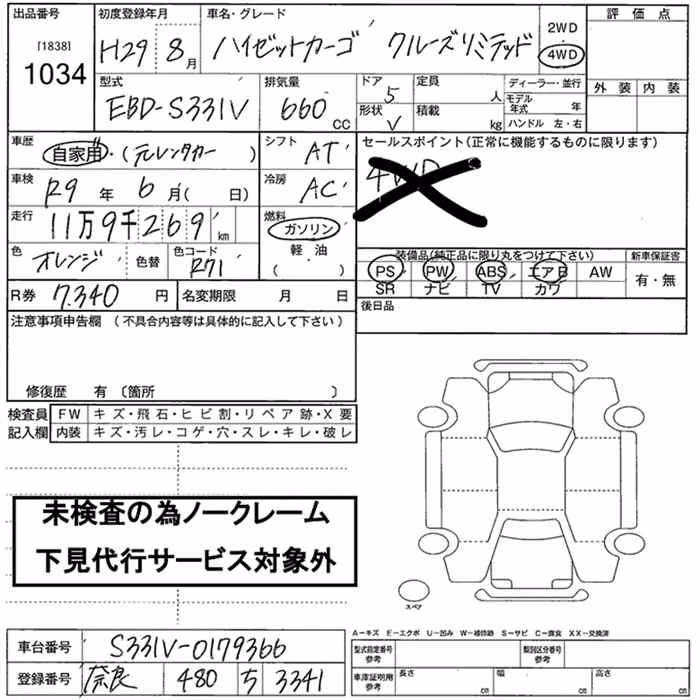 出品番号 初度登録年月 車名・グレード 2WD ・ 4WD 評価点
[1838] 1034 H29 8月 ハイゼットカーゴ クルーズリミテッド
外装 内装
型式 排気量 ドア 定員 ディーラー・並行
EBD-S331V 660 CC 5 人 モデル年式 年
形状 積載
V kg ハンドル 左・右
車歴 自家用・(元レンタカー ) シフト AT セールスポイント(正常に機能するものに限ります)
4WD
車検 R9 年 6 月( 日) 冷房 AC
走行 11万9千269 km 燃料 ガソリン
軽・油
( )
色 オレンジ 色替 色コード R71
装備品(純正品に限り丸をつけて下さい) 新車保証書
PS PW ABS エアB AW 有・無
SR ナビ TV カワ
R券 7,340 円 名変期限 月 日
後日品
注意事項申告欄 (不具合内容等は具体的に記入して下さい)
修復歴 有 〔箇所 〕
検査員 FW キズ・飛石・ヒビ割・リペア跡・X要
記入欄 内装 キズ・汚レ・コゲ・穴・スレ・キレ・破レ
未検査の為ノークレーム
下見代行サービス対象外
スペア
A-キズ E-エクボ U-凹み W-補修跡 S-サビ C-腐食 XX-交換済
車台番号 S331V-0179366
型式指定番号 参考 類別区分番号 参考
登録番号 奈良 480 ち 3341
車庫証明用 参考 長さ cm 幅 cm 高さ cm